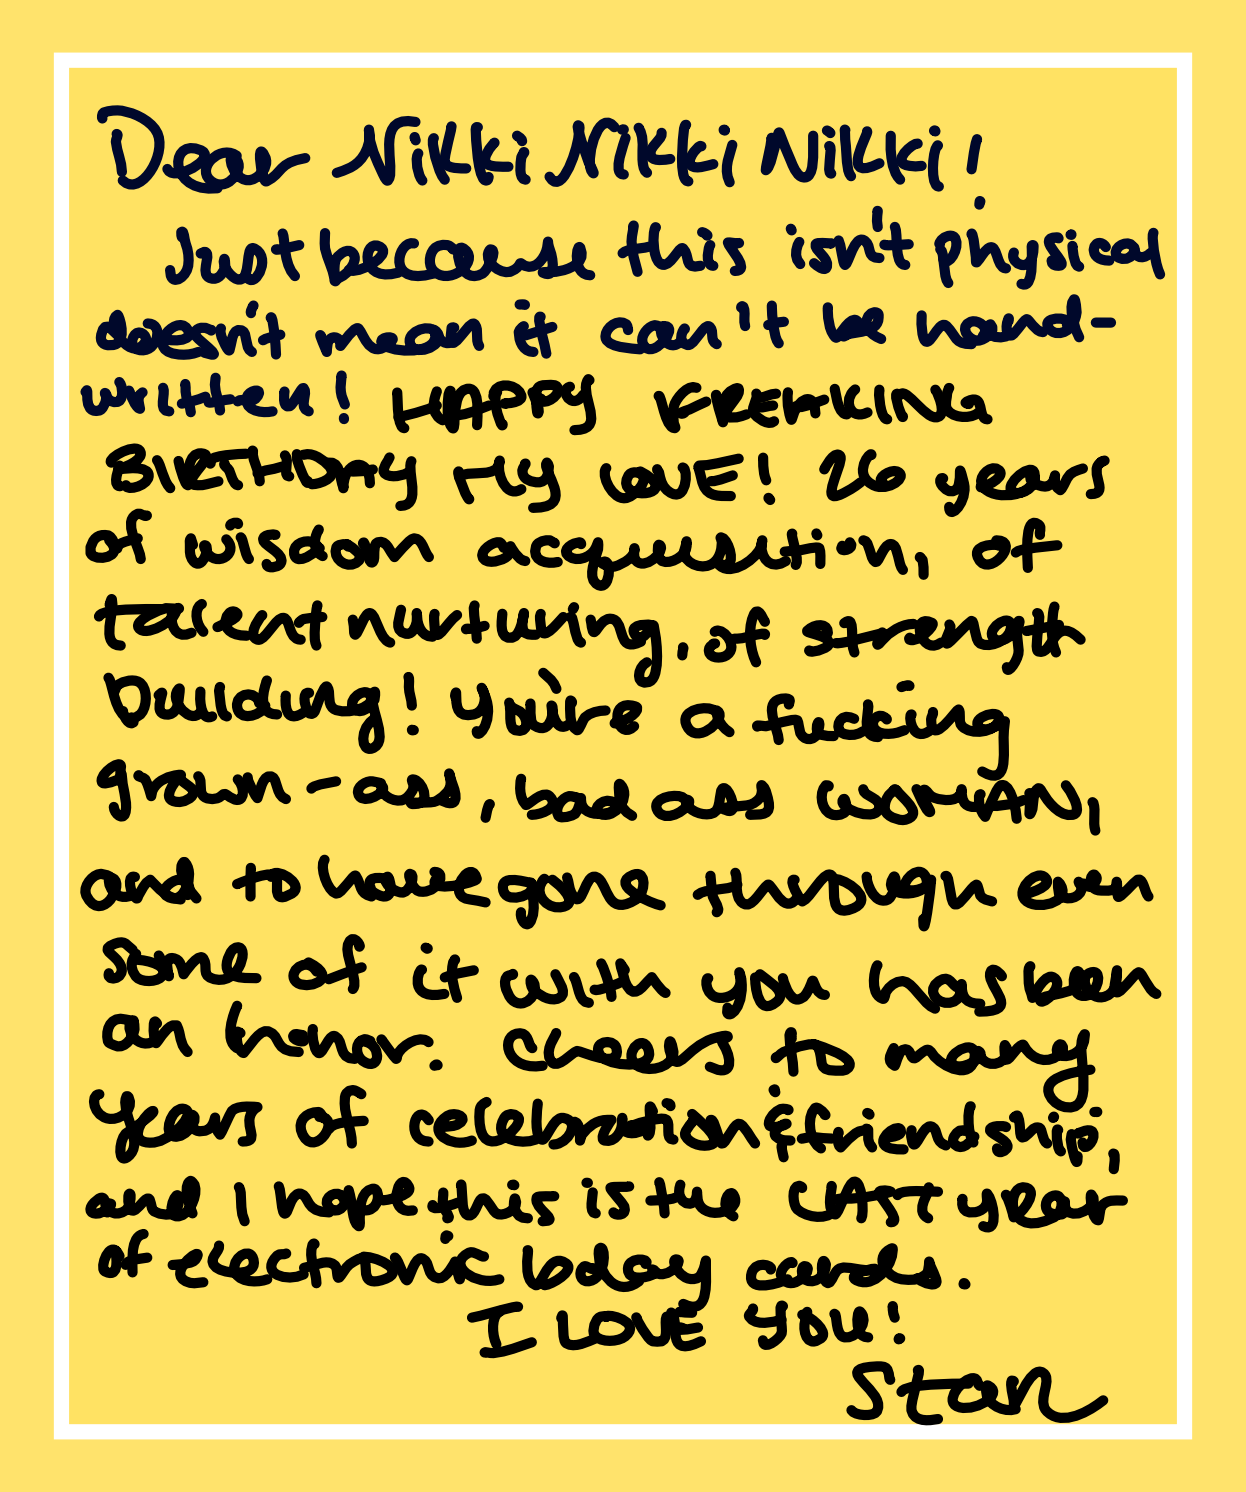 Dear Nikki Nikki Nikki!
Just because this isn't physical
doesn't mean it can't be hand-
written! HAPPY FREAKING
BIRTHDAY MY LOVE! 26 years
of wisdom acquisition, of
talent nurturing, of strength
building! You're a fucking
grown-ass, badass WOMAN,
and to have gone through even
some of it with you has been
an honor. Cheers to many
years of celebration & friendship,
and I hope this is the LAST year
of electronic bday cards.
I LOVE YOU!
Stan